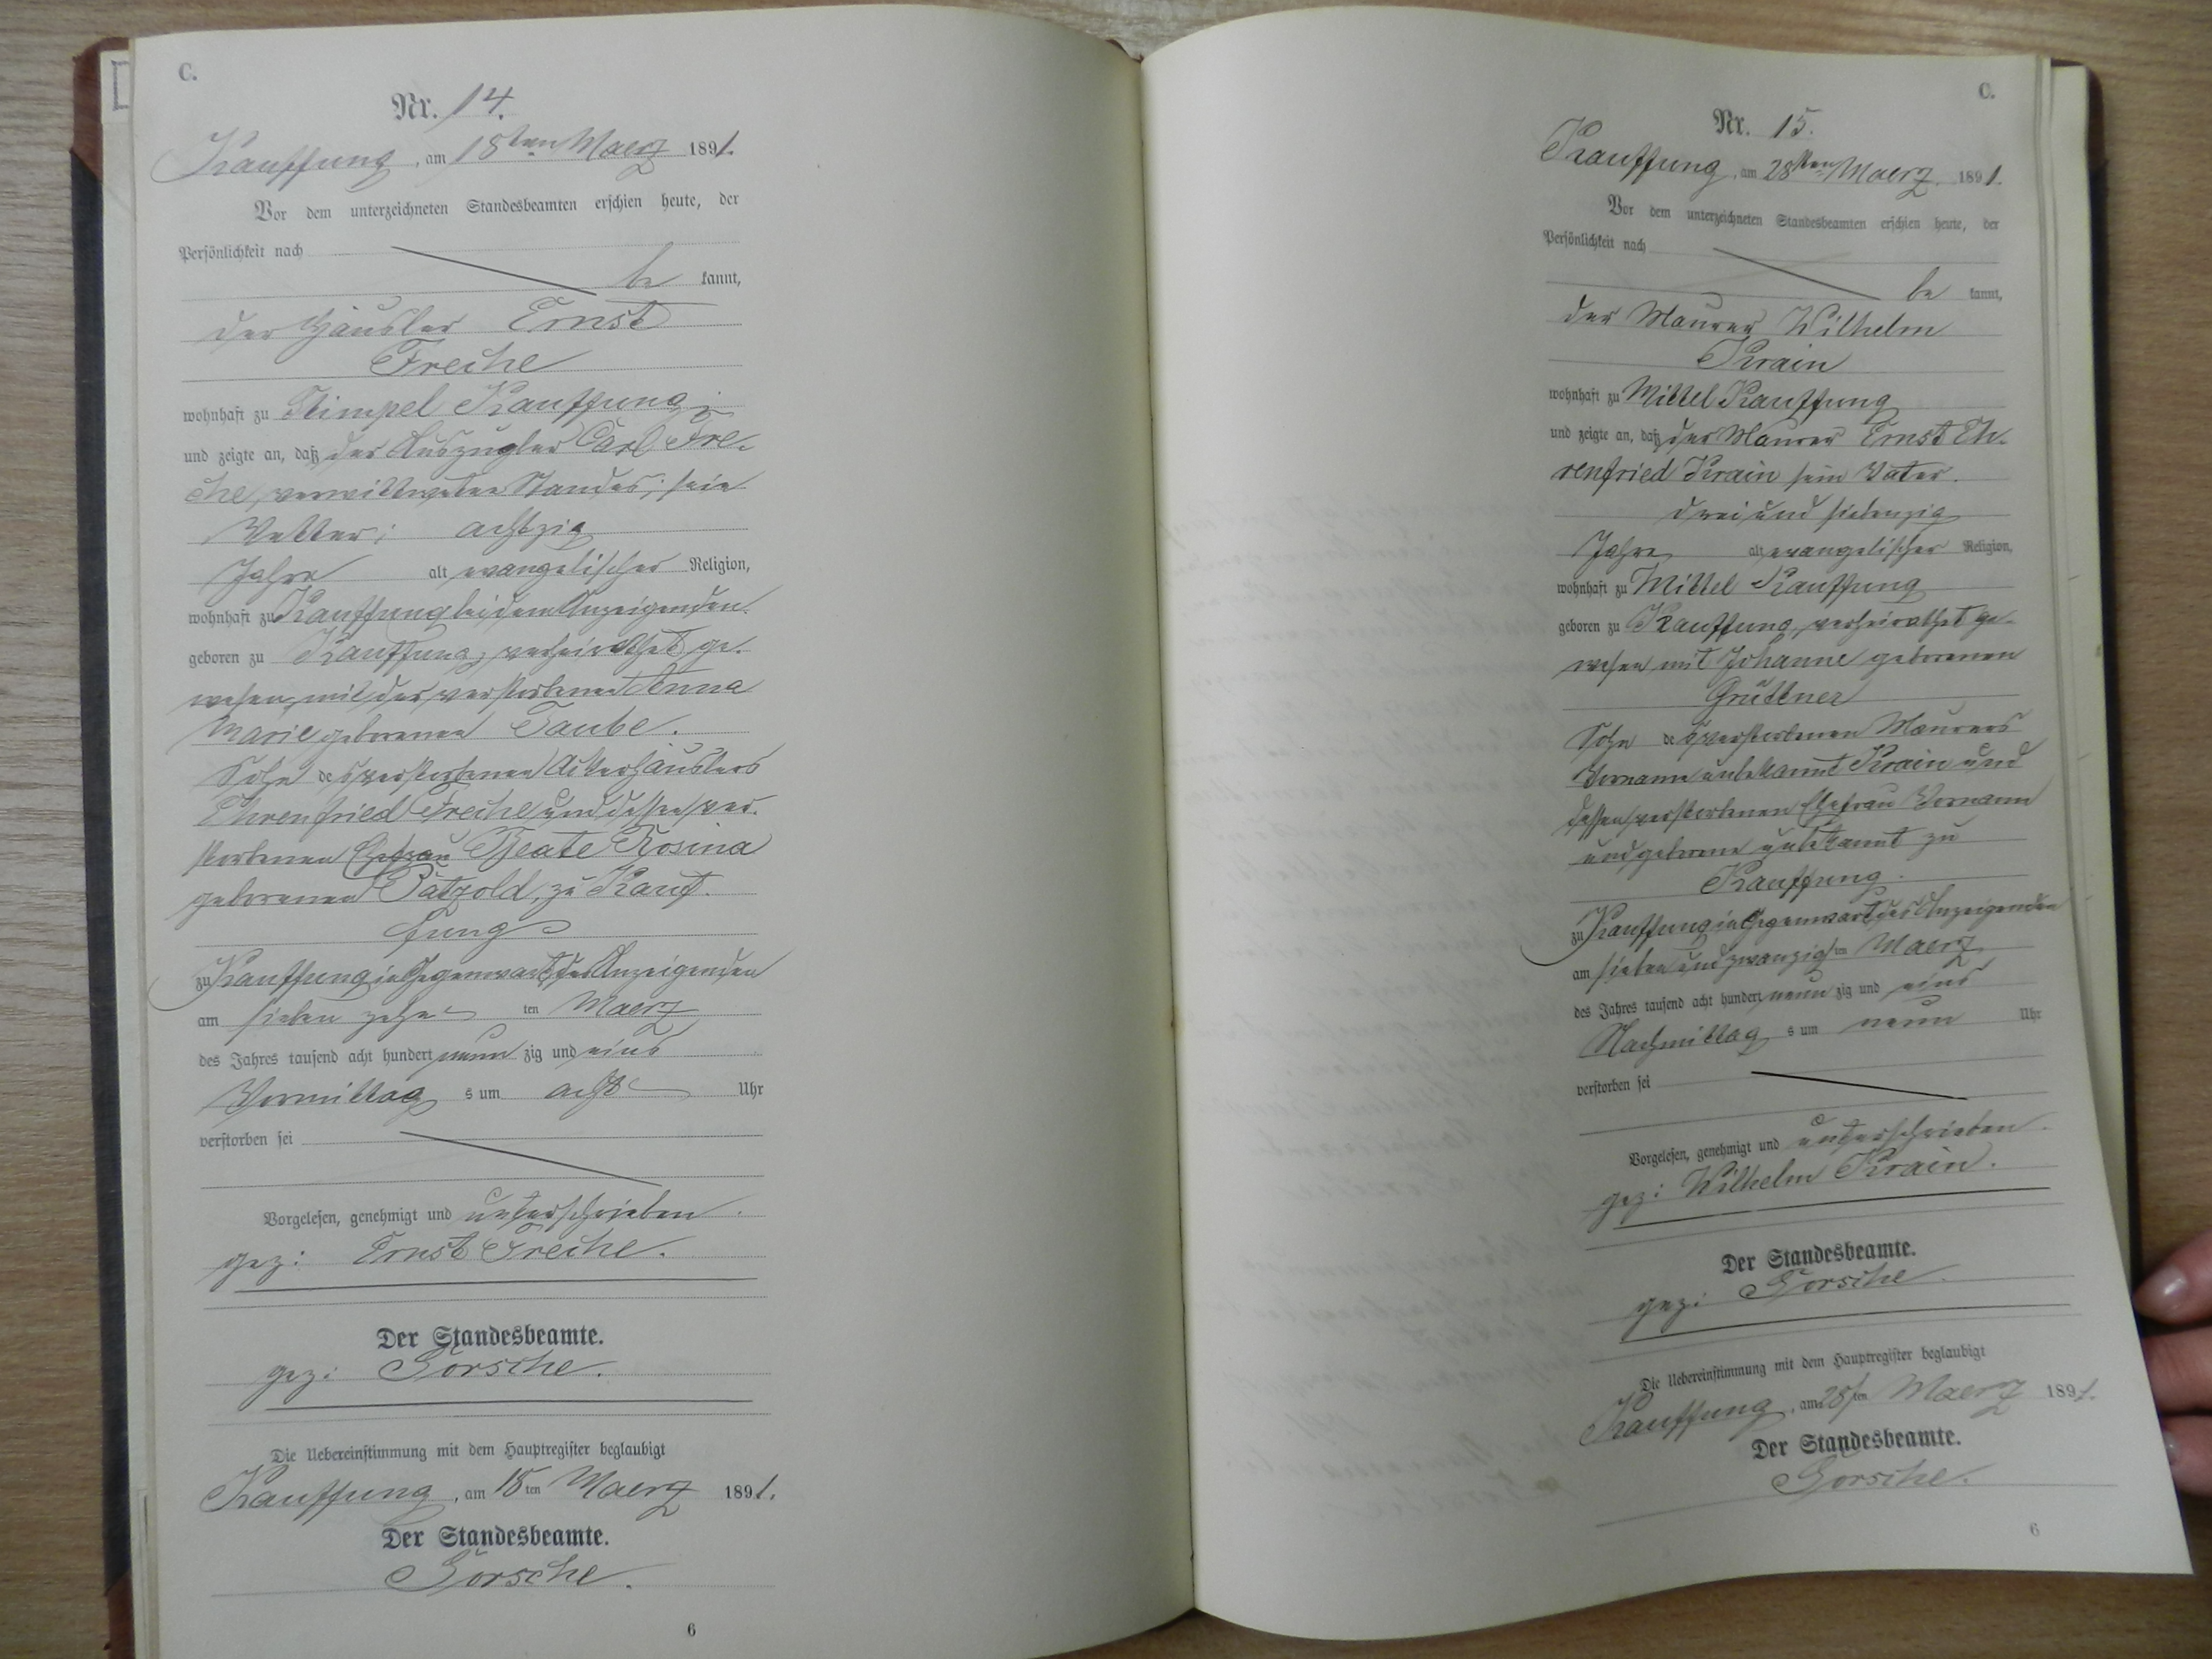 C.
Nr. 14.
Kauffung, am 18ten Maerz 1891.
Vor dem unterzeichneten Standesbeamten erschien heute, der
Persönlichkeit nach
be kannt,
der Häusler Ernst
Freche
wohnhaft zu Stimpel Kauffung;
und zeigte an, daß der Auszügler Carl Fre-
che, verwittweten Standes, sein
Vetter; achtzig
Jahre alt evangelischer Religion,
wohnhaft zu Kauffung bei dem Anzeigenden.
geboren zu Kauffung, verheirathet ge-
wesen, mit der verstorbenen Anna
Marie geborenen Taube.
Sohn des verstorbenen Ackerhäuslers
Ehrenfried Freche und dessen ver-
storbenen Ehefrau Beate Rosina
geborenen Pätzold, zu Kauf-
fung
zu Kauffung in Gegenwart des Anzeigenden
am sieben zehn ten Maerz
des Jahres tausend acht hundert neun zig und eins
Vormittag s um acht Uhr
verstorben sei
Vorgelesen, genehmigt und unterschrieben.
gez: Ernst Freche.
Der Standesbeamte.
gez: Gorsche.
Die Uebereinstimmung mit dem Hauptregister beglaubigt
Kauffung, am 18ten Maerz 1891.
Der Standesbeamte.
Gorsche.
6
C.
Nr. 15.
Kauffung, am 28sten Maerz 1891.
Vor dem unterzeichneten Standesbeamten erschien heute, der
Persönlichkeit nach
be kannt,
der Maurer Wilhelm
Krain
wohnhaft zu Mittel Kauffung
und zeigte an, daß der Maurer Ernst Eh-
renfried Krain sein Vater.
drei und siebenzig
Jahre alt evangelischer Religion,
wohnhaft zu Mittel Kauffung
geboren zu Kauffung, verheirathet ge-
wesen mit Johanne geborenen
Grüttner
Sohn des verstorbenen Maurers
Vorname unbekannt Krain und
dessen verstorbenen Ehefrau Vorname
und geborene unbekannt zu
Kauffung.
zu Kauffung in Gegenwart des Anzeigenden
am sieben und zwanzigsten Maerz
des Jahres tausend acht hundert neun zig und eins
Nachmittag s um neun Uhr
verstorben sei
Vorgelesen, genehmigt und unterschrieben.
gez: Wilhelm Krain.
Der Standesbeamte.
gez: Gorsche.
Die Uebereinstimmung mit dem Hauptregister beglaubigt
Kauffung, am 28sten Maerz 1891.
Der Standesbeamte.
Gorsche.
6